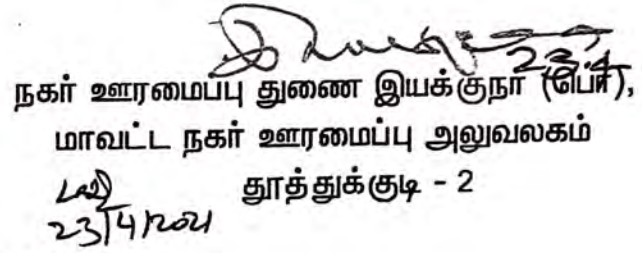 23.4
நகர் ஊரமைப்பு துணை இயக்குநர் (பொ),
மாவட்ட நகர் ஊரமைப்பு அலுவலகம்
தூத்துக்குடி - 2
23/4/2021